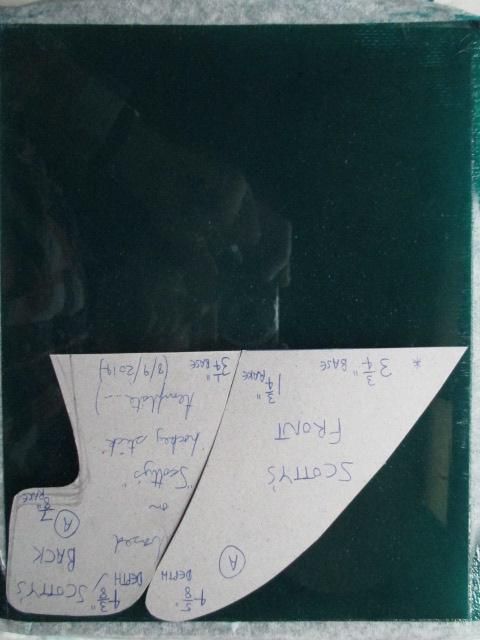 4 5/8" DEPTH
A
SCOTTY'S
FRONT
1 3/4" RAKE
3 3/4" BASE
*
4 3/8" DEPTH /
SCOTTY'S
BACK
A
7/8" RAKE
based
on
"Scotty's"
hockey stick
template...)
(3/9/2014)
3 1/4" BASE